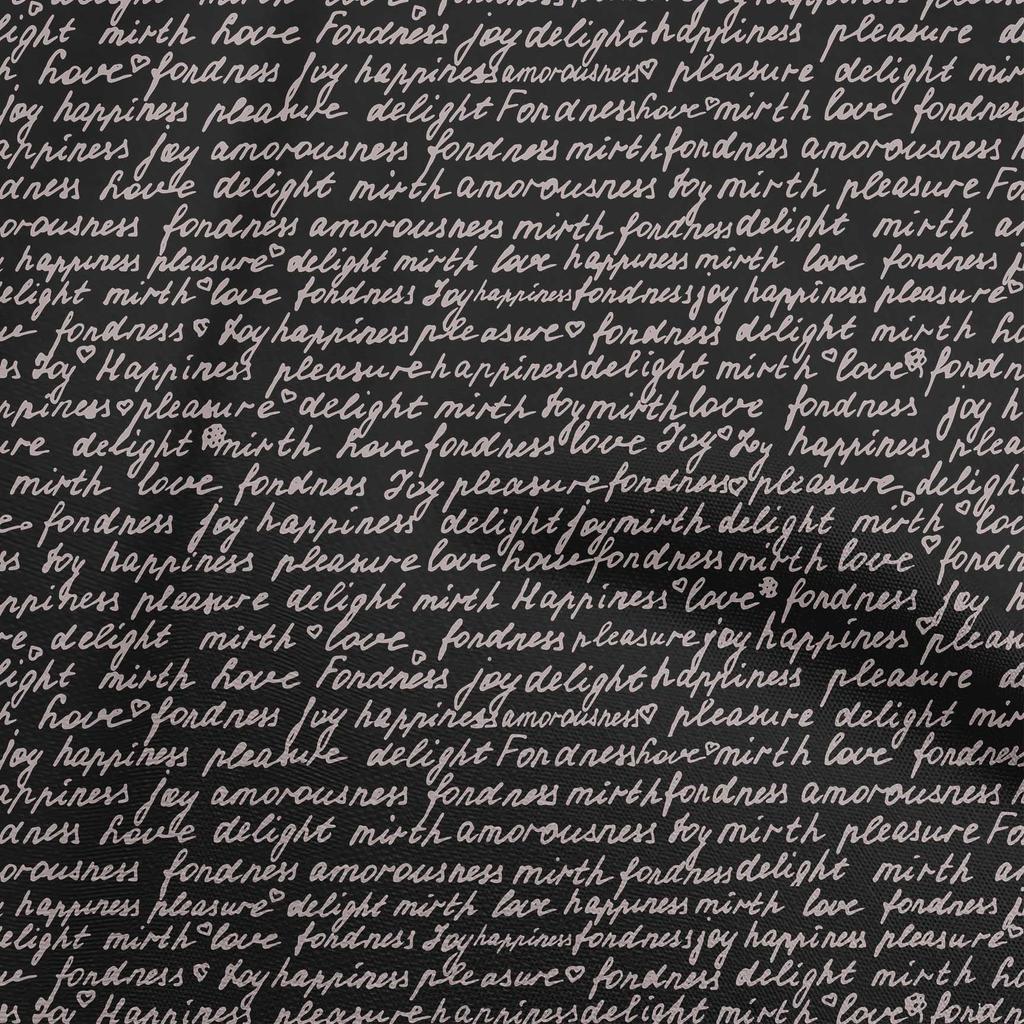 delight mirth love fondness joy happiness pleasure
light mirth love Fondness joy delight happiness pleasure
love fondness joy happiness amorousness pleasure delight
joy happiness pleasure delight Fondness love mirth love fondness
happiness joy amorousness fondness mirth fondness amorousness
dness love delight mirth amorousness Joy mirth pleasure Fo
orousness fondness amorousness mirth fondness delight mirth
happiness pleasure delight mirth love happiness mirth love fondness
elight mirth love fondness Joy happiness fondness joy happiness pleasure
fondness Joy happiness pleasure fondness delight mirth
Joy Happiness pleasure happiness delight mirth love fond
ppiness pleasure delight mirth Joy mirth love fondness joy
re delight mirth love fondness love Joy Joy happiness plea
mirth love fondness Joy pleasure fondness pleasure delight
fondness joy happiness delight joy mirth delight mirth lov
ss Joy happiness pleasure love love fondness mirth love fond
ppiness pleasure delight mirth Happiness love fondness joy
re delight mirth love fondness pleasure joy happiness pleas
light mirth love Fondness joy delight happiness pleasure
love fondness joy happiness amorousness pleasure delight
joy happiness pleasure delight Fondness love mirth love fondness
appiness joy amorousness fondness mirth fondness amorousness
dness love delight mirth amorousness Joy mirth pleasure Fo
orousness fondness amorousness mirth fondness delight mirth
happiness pleasure delight mirth love happiness mirth love fondness
elight mirth love fondness Joy happiness fondness joy happiness pleasure
fondness Joy happiness pleasure fondness delight mirth
Joy Happiness pleasure happiness delight mirth love fond